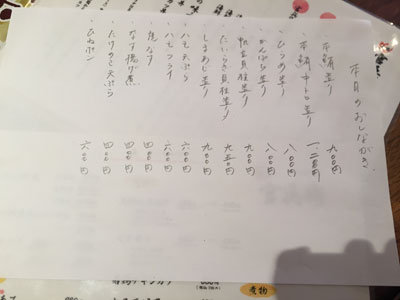 本日のおしながき
・本鮪造り 九〇〇円
・本鮪中トロ造り 一、二〇〇円
・ひらめ造り 八〇〇円
・かんぱち造り 八〇〇円
・帆立貝柱造り 九〇〇円
・たいらぎ貝柱造り 九五〇円
・しまあじ造り 九〇〇円
・ハモ天ぷら 六〇〇円
・ハモフライ 六〇〇円
・焼なす 四〇〇円
・なす揚げ煮 四〇〇円
・たけのこ天ぷら 四〇〇円
・ひねポン 六〇〇円
煮物